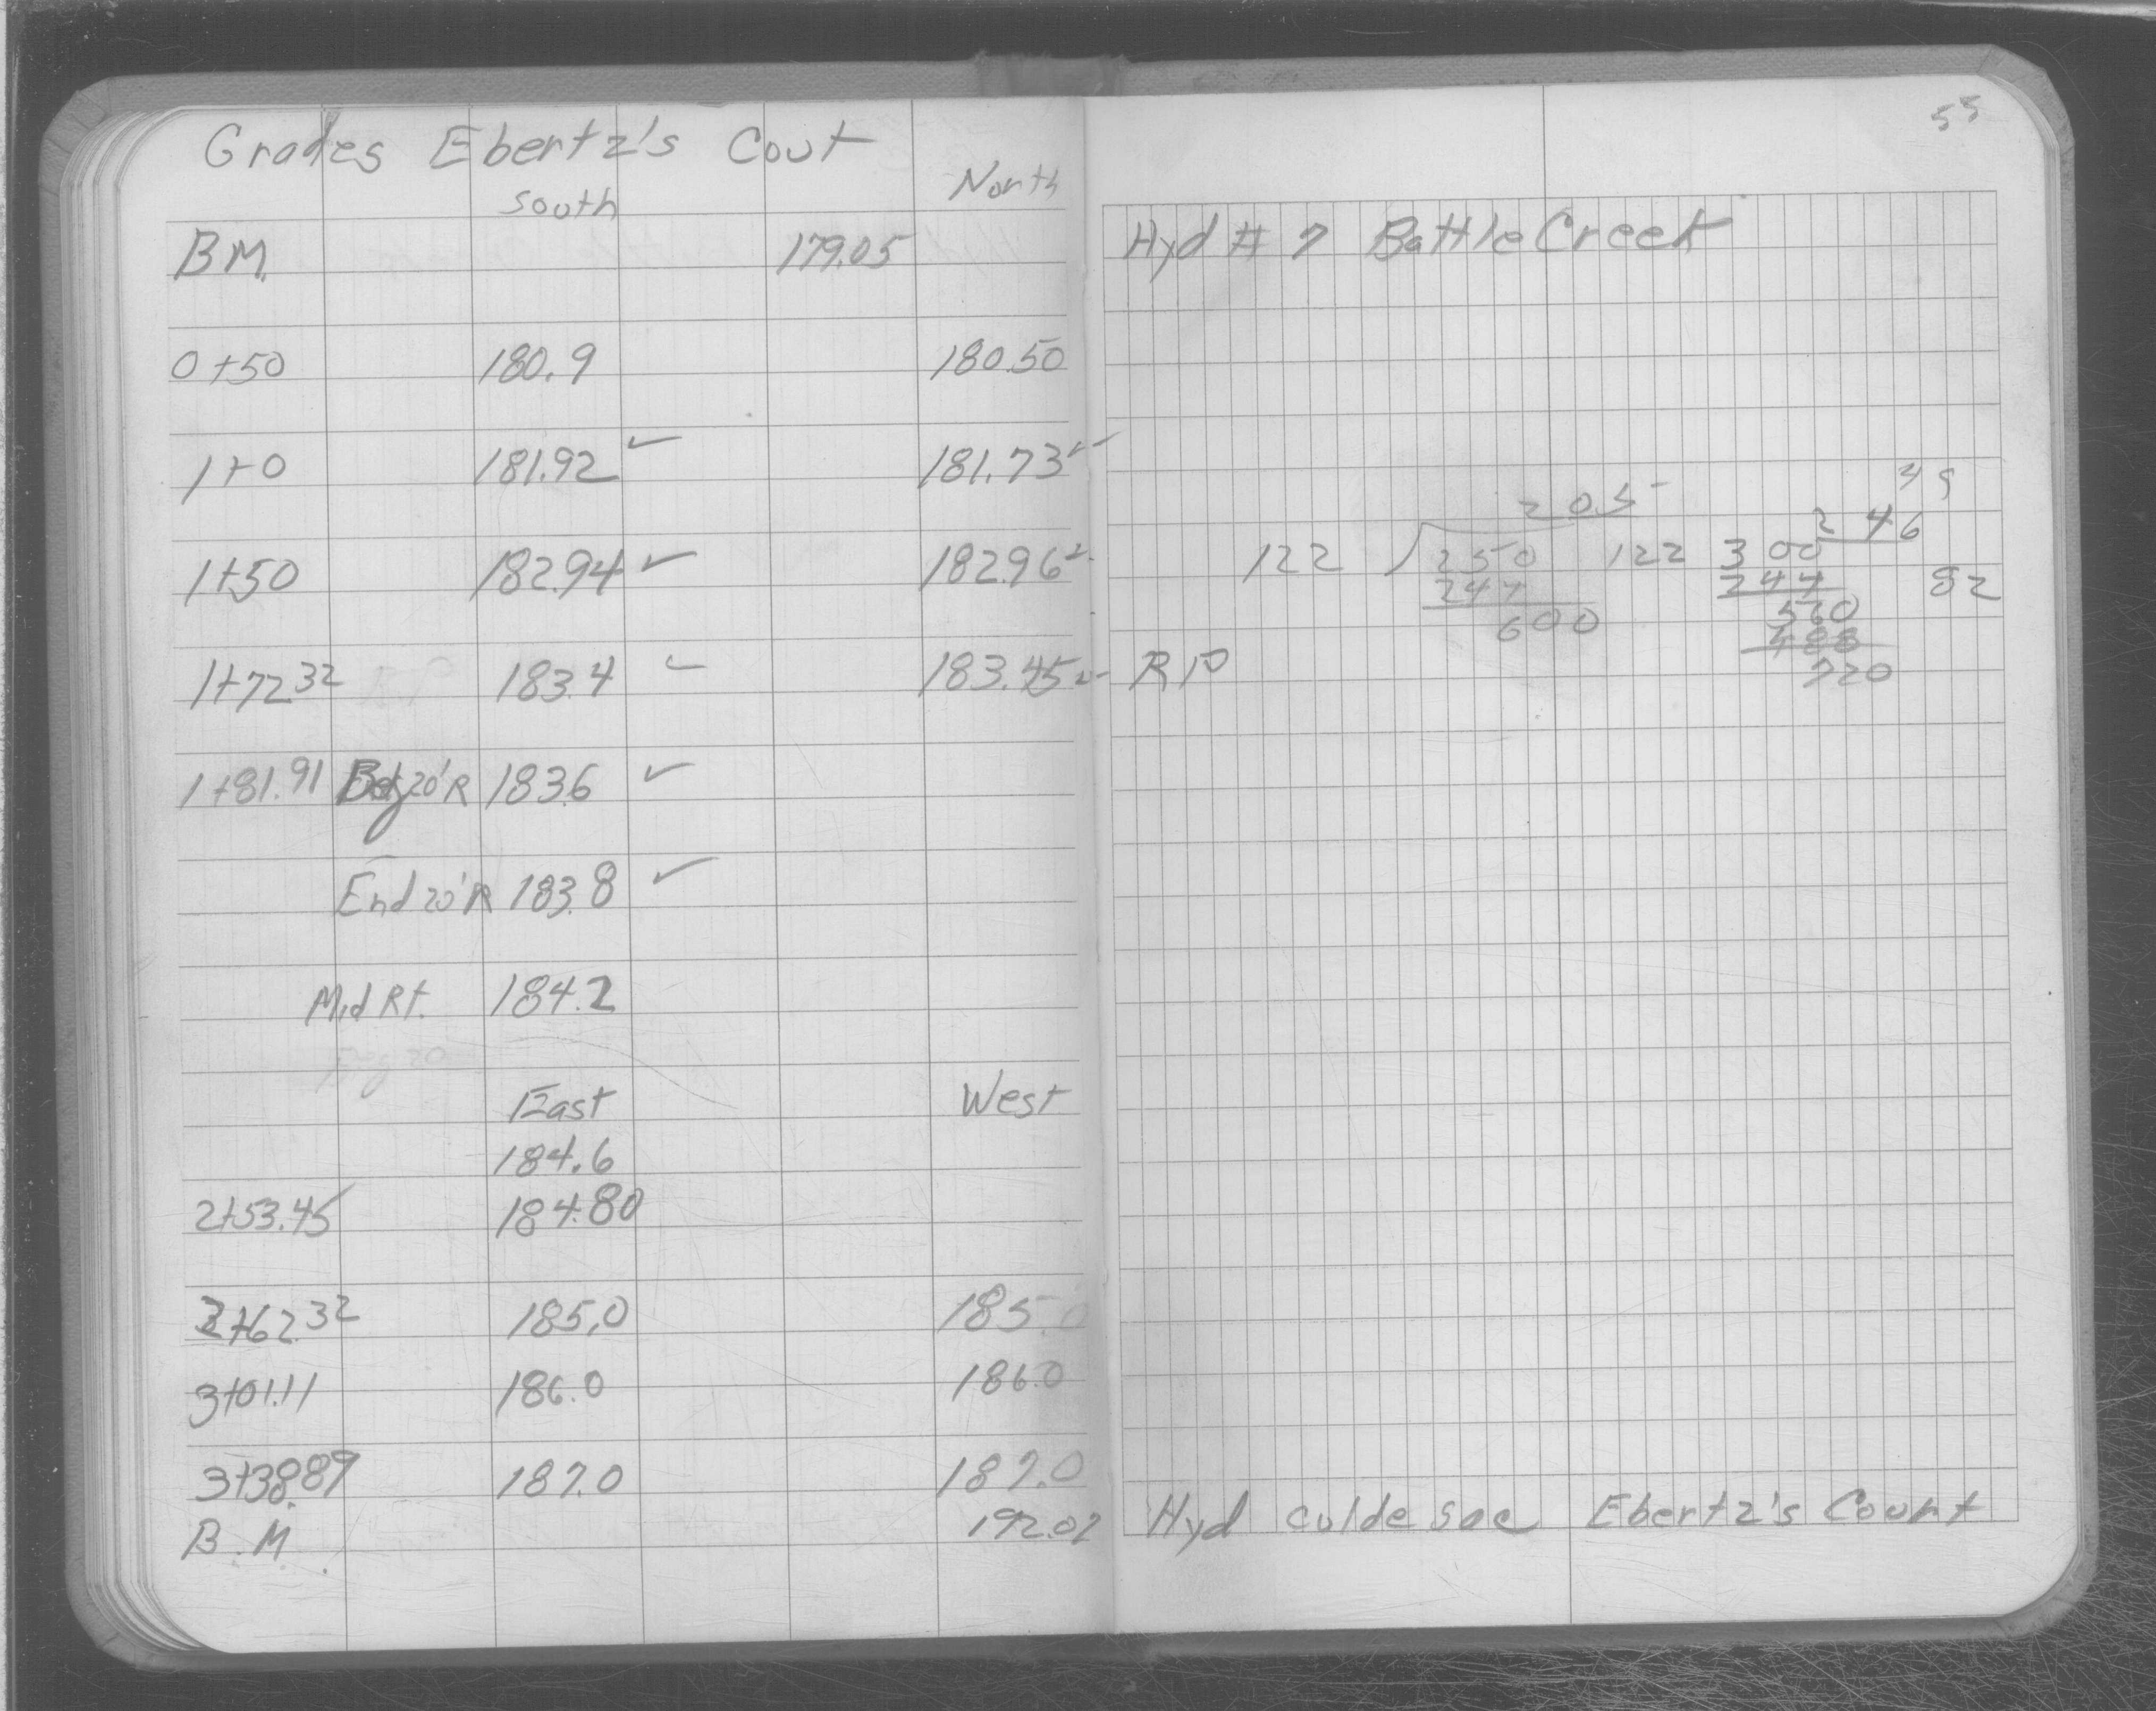 Grades Ebertz's Cout
South North
BM. 179.05
0+50 180.9 180.50
1+0 181.92 ✓ 181.73 ✓
1+50 182.94 ✓ 182.96 ✓
1+72 32 183.4 ✓ 183.45 ✓
1+81.91 Beg 20'R 183.6 ✓
End 20'R 183.8 ✓
Mid Rt. 184.2
East West
184.6
2+53.45 184.80
2+62 32 185.0 185.0
3+01.11 186.0 186.0
3+38.89 187.0 187.0
B.M. 192.02
55
Hyd # 7 Battle Creek
49
205 2 46
122 250 122 300
244 244 82
600 560
488
RP 720
Hyd culdesac Ebertz's Court